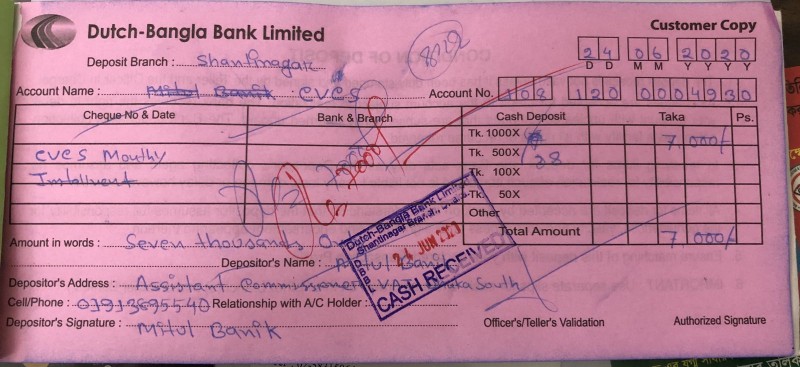 Dutch-Bangla Bank Limited
Customer Copy
8022
Deposit Branch : Shantinagar
24 06 2020
D D M M Y Y Y Y
Account Name : Mitul Banik CVCS
Account No. 108 120 0004930
Cheque No & Date Bank & Branch Cash Deposit Taka Ps.
Tk. 1000X 7,000/-
CVCS Monthy Tk. 500X
Installment Tk. 100X
Tk. 50X
Other
Total Amount 7,000/-
Amount in words : Seven thousands Only
Depositor's Name : Mitul Banik
Depositor's Address : Assistant Commissioner, VAT, Dhaka South
Cell/Phone : 01913695540 Relationship with A/C Holder :
Depositor's Signature : Mitul Banik
Officer's/Teller's Validation Authorized Signature
Dutch-Bangla Bank Limited
Shantinagar Branch, Dhaka
JUN 2020
CASH RECEIVED